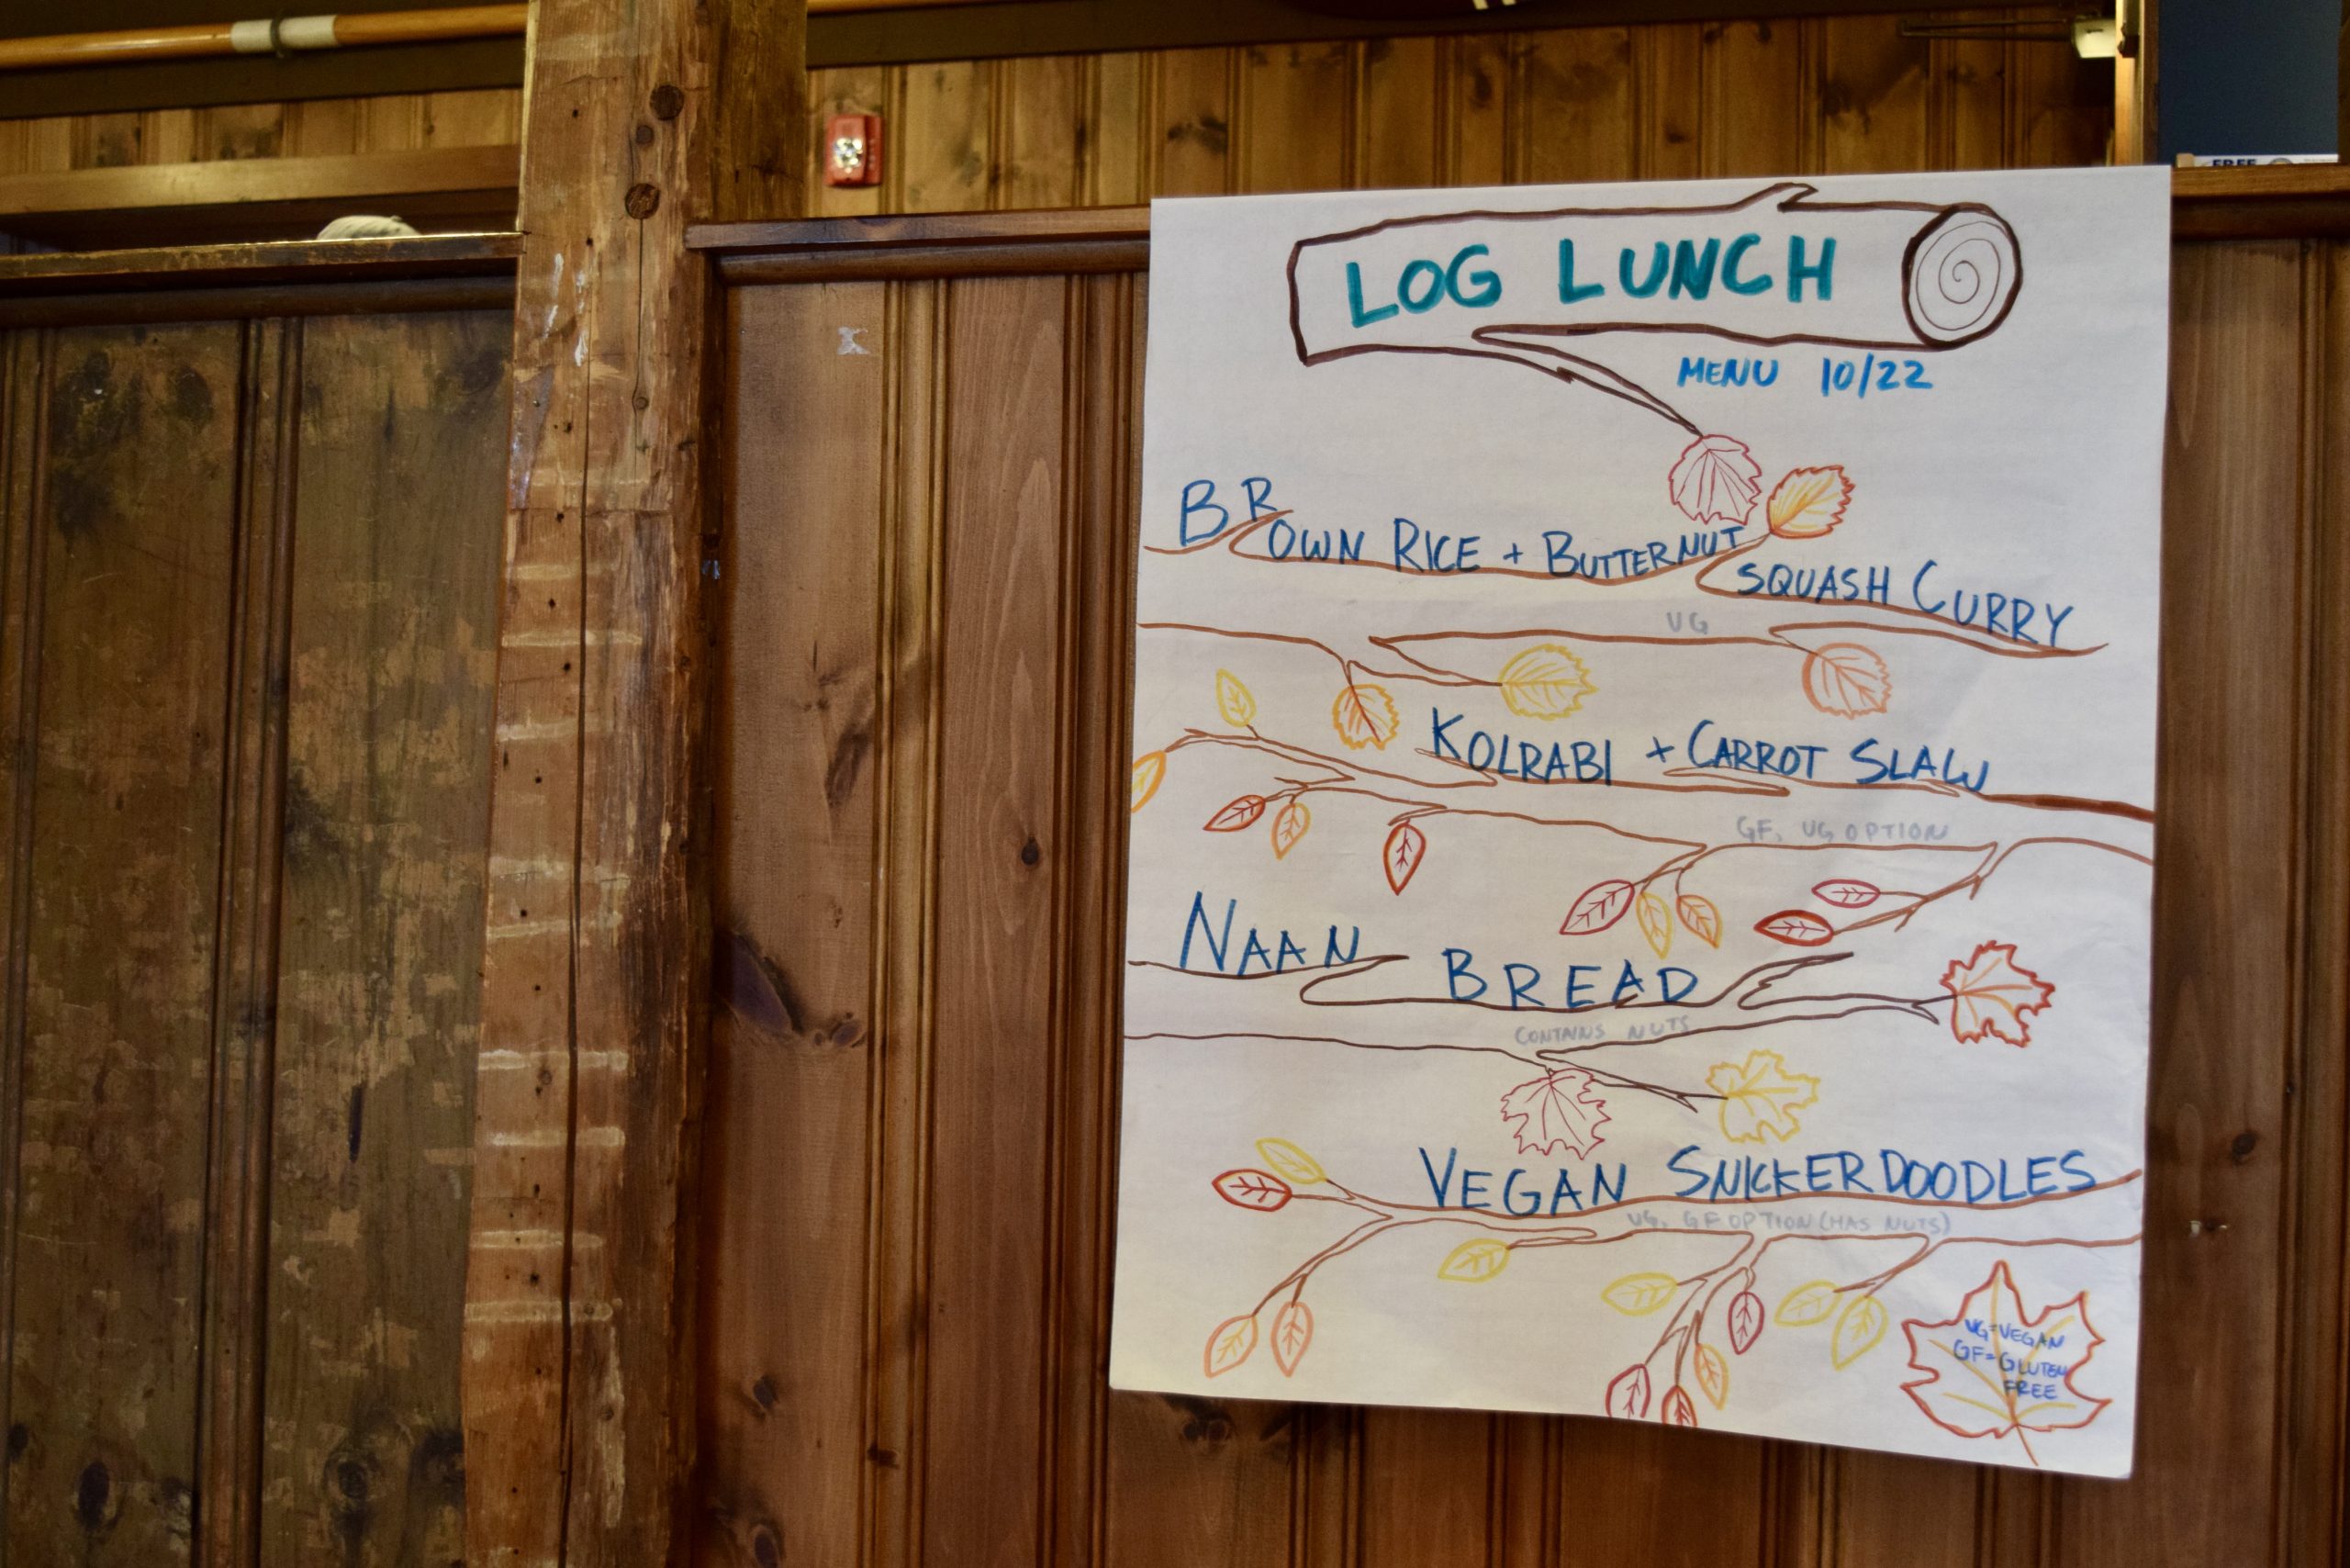 FREE
LOG LUNCH
MENU 10/22
BROWN RICE + BUTTERNUT SQUASH CURRY
VG
KOLRABI + CARROT SLAW
GF, VG OPTION
NAAN BREAD
CONTAINS NUTS
VEGAN SNICKERDOODLES
VG, GF OPTION (HAS NUTS)
VG=VEGAN
GF=GLUTEN
FREE